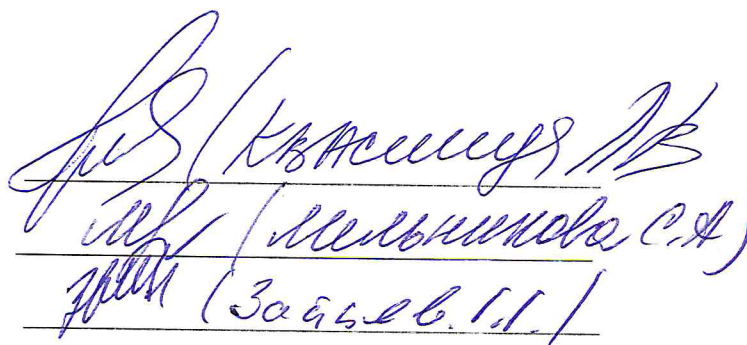 (Квасниця Л.В
(Мельникова С.А)
(Зайцев. Г.Г.)